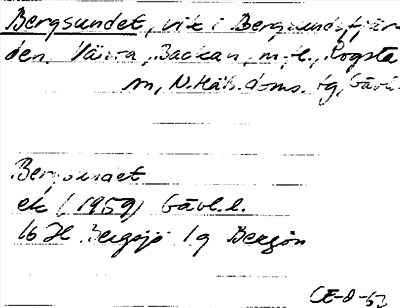 Bergsundet, vik i Bergsundsfjär
den, Västra Backan, m.fl., Rogsta
sn, N. Häls. d:ms. tg, Gävl.
Bergsundet
ek (1959) Gävl.l.
16H Bergsjö 1g Bergön
CE-D-62